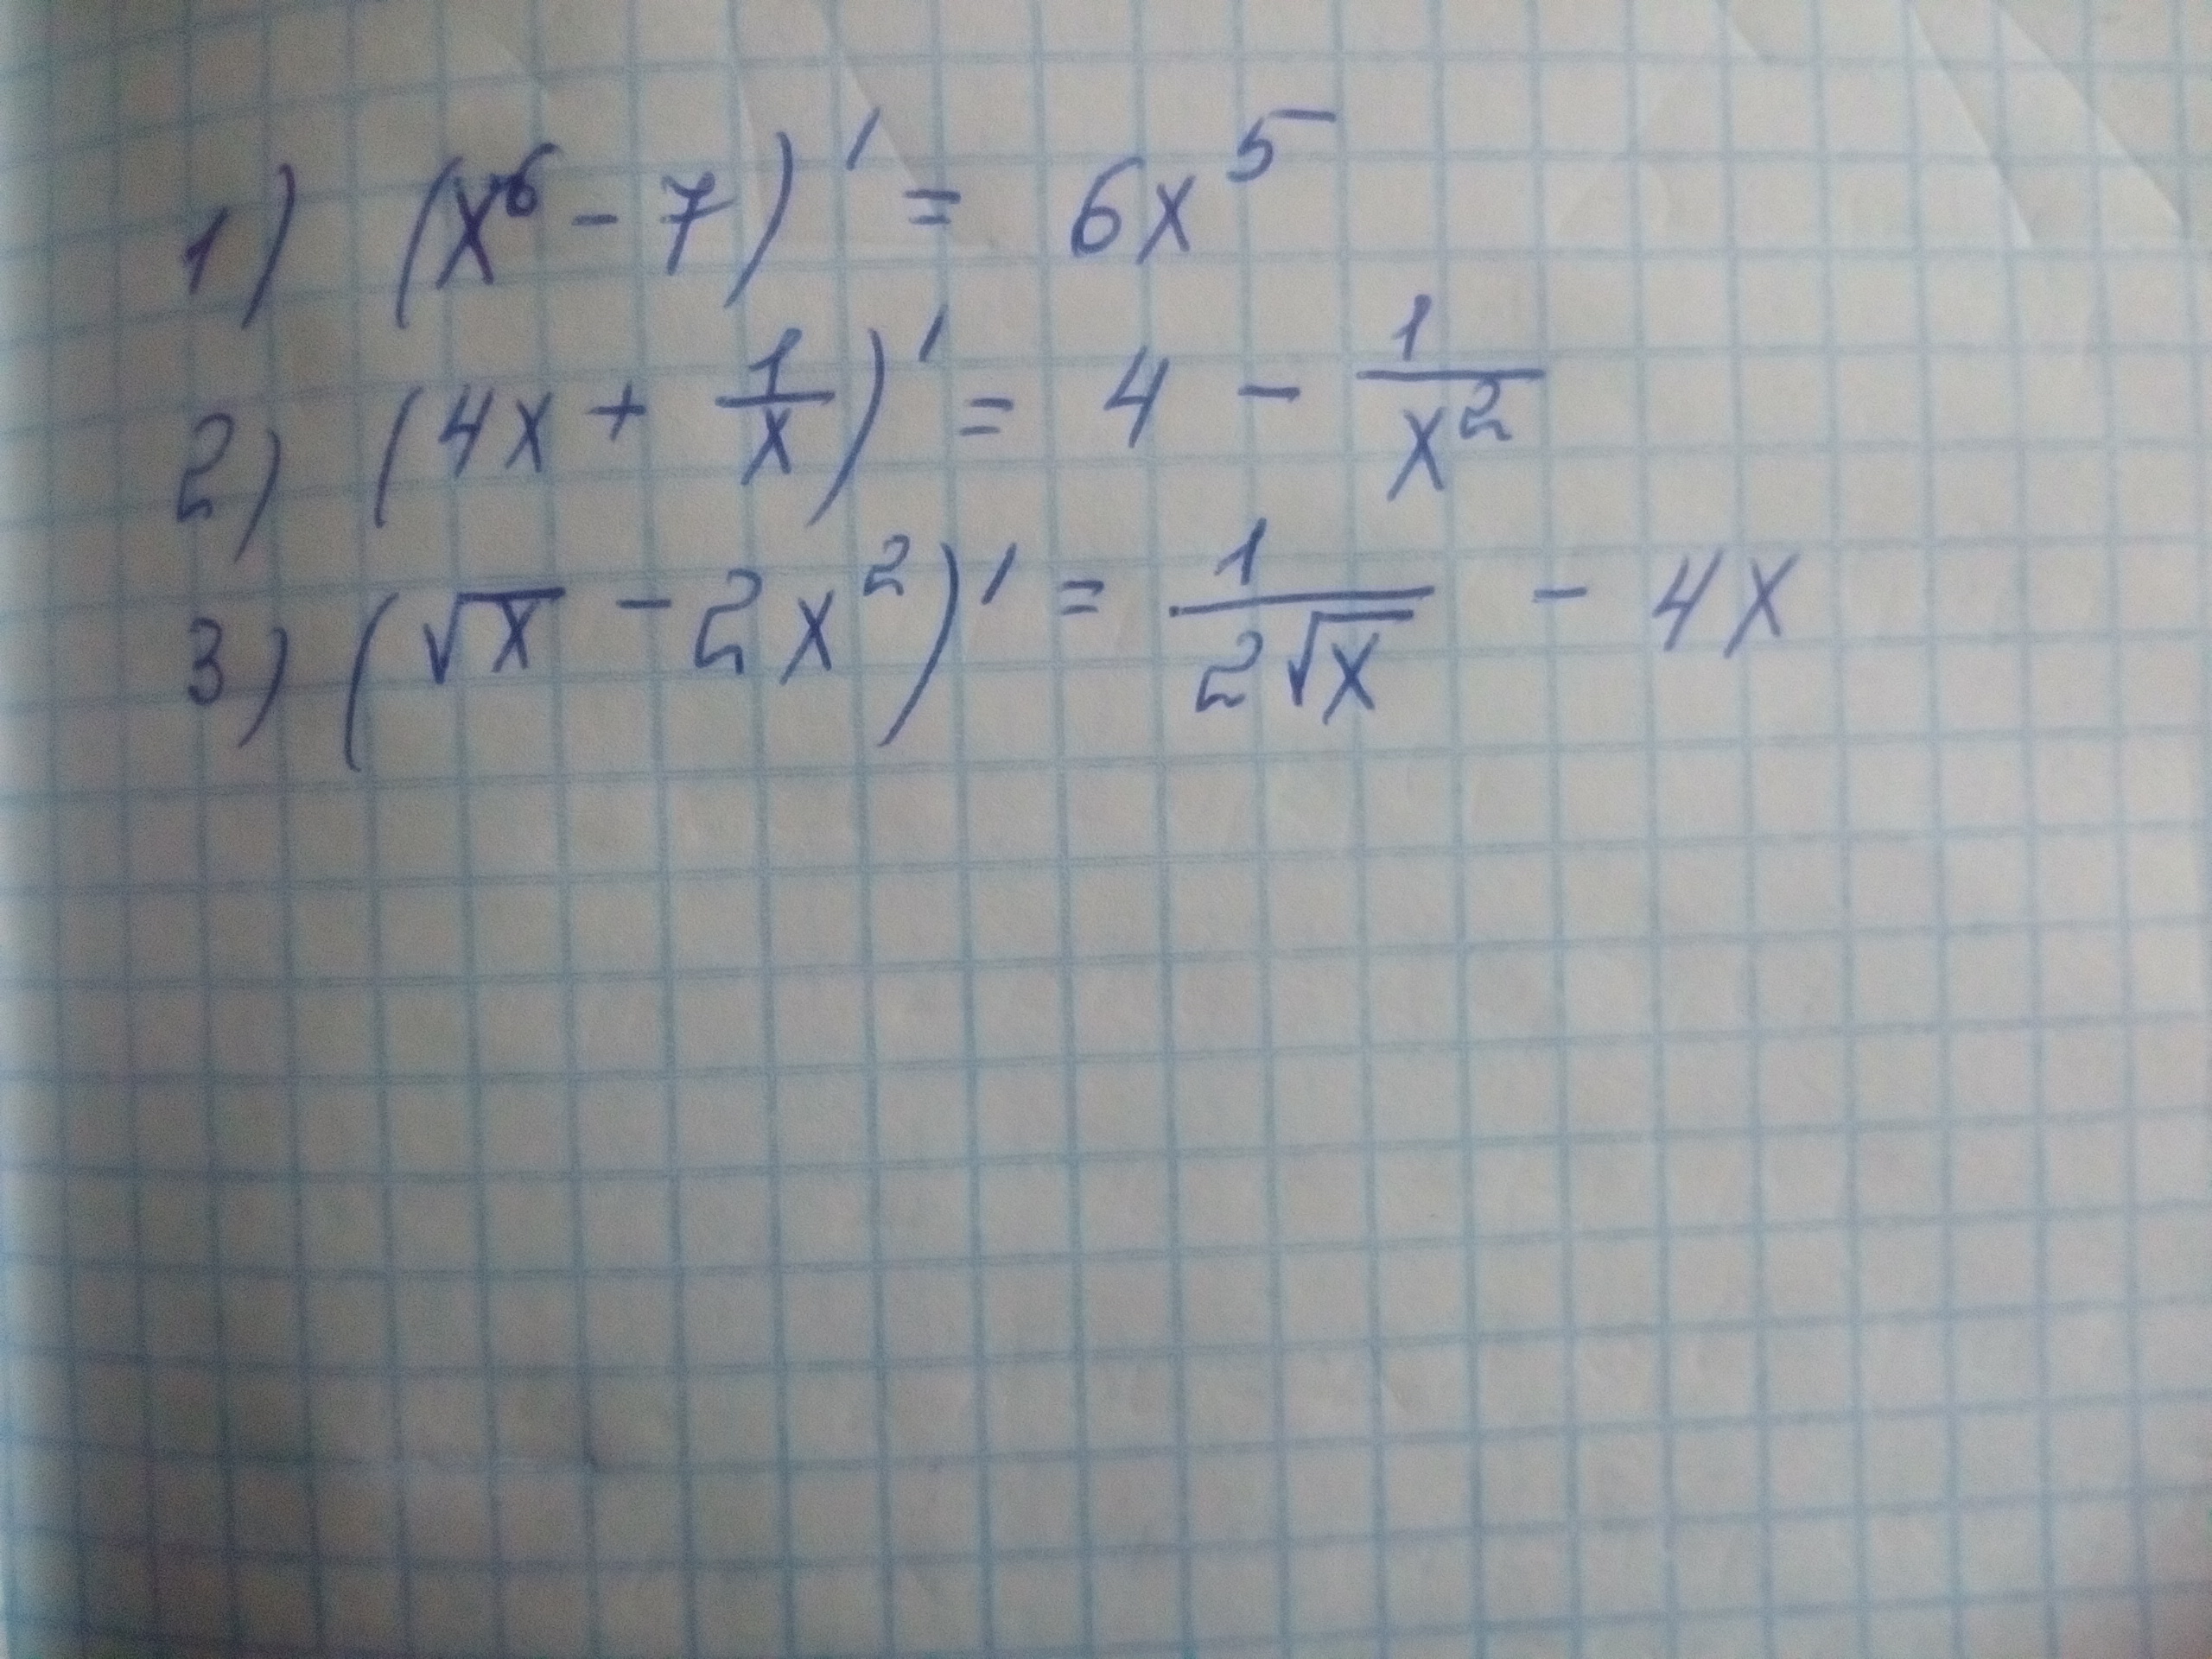 1) (x⁶ - 7)' = 6x⁵
2) (4x + 1/x)' = 4 - 1/x²
3) (√x - 2x²)' = 1/(2√x) - 4x